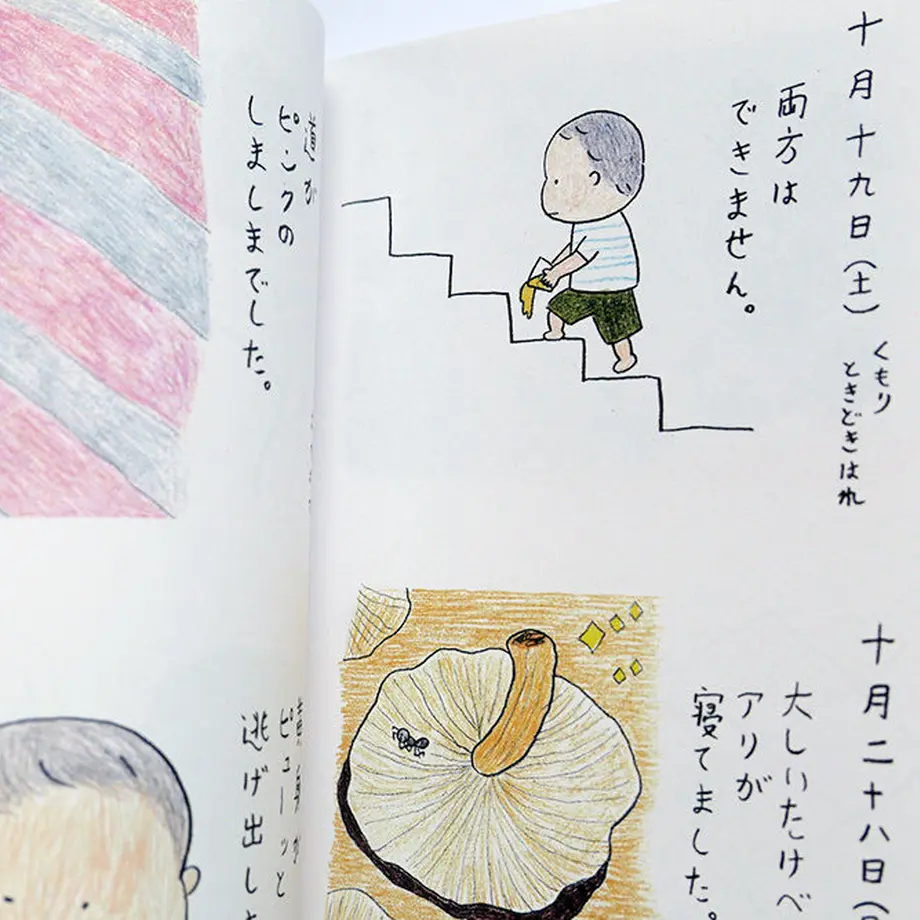 十月十九日（土）
くもり
ときどきはれ
両方は
できません。
十月二十八日（
大しいたけベ
アリが
寝てました。
道が
ピンクの
しましまでした。
黄身が
ピューッと
逃げ出し